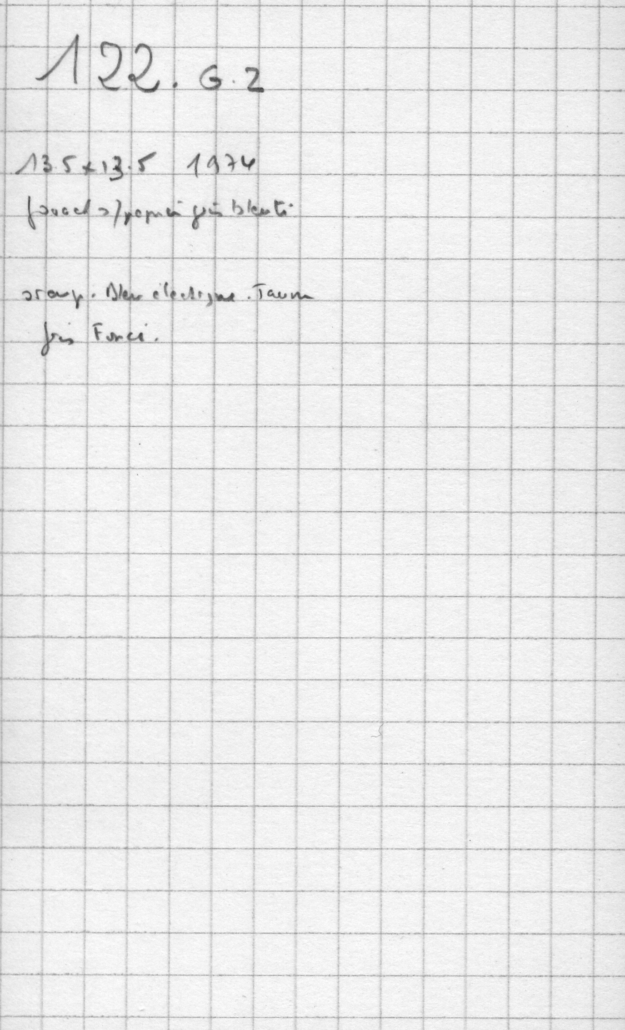 122. G.2
13.5x13.5 1974
s/papier gris bleuté
orange. Bleu électrique. Jaune
gris Foncé.